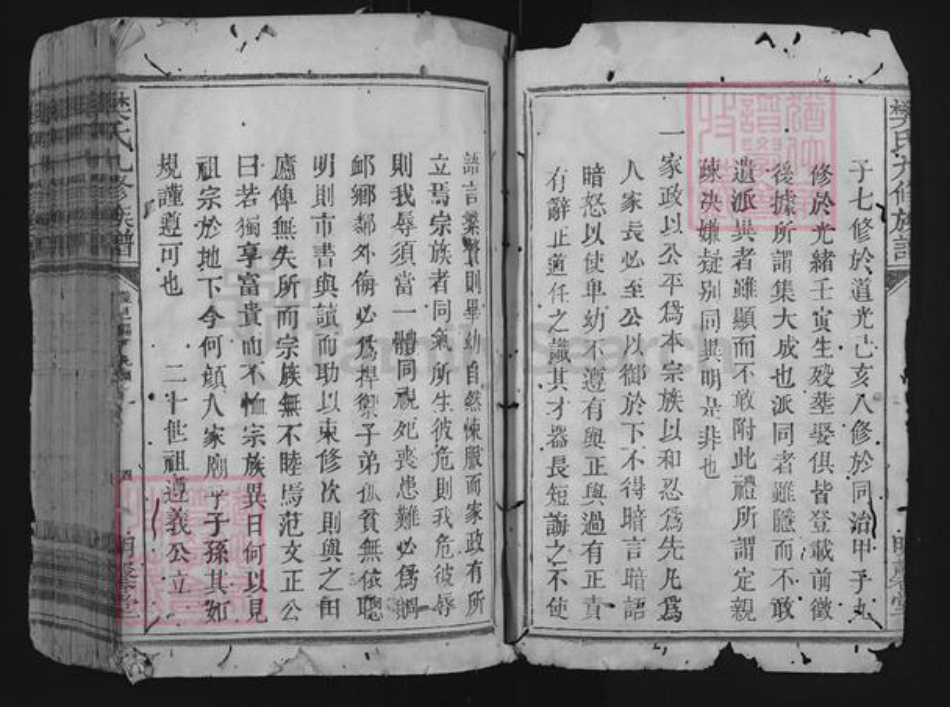 樊氏九修族譜
子七修於道光己亥八修於同治甲子九
修於光緒壬寅生歿塟娶俱皆登載前徵
後據所謂集大成也派同者雖隱而不敢
遺派異者雖顯而不敢附此禮所謂定親
疎決嫌疑别同異明是非也
一家政以公平爲本宗族以和忍爲先凡爲
人家長必至公以御於下不得暗言暗語
暗怒以使卑幼不遵有與正與過有正責
有辭正道任之議其才器長短誨之不使
語言樂賢則畢幼自然悚服而家政有所
立焉宗族者同氣所生彼危則我危彼辱
則我辱須當一體同視死喪患難必爲賙
䘏鄉鄰外侮必爲捍禦子弟孤貧無依聰
明則市書與讀而助以束修次則與之田
廬俾無失所而宗族無不睦焉范文正公
曰若獨享富貴而不恤宗族異日何以見
祖宗於地下今何顔入家廟乎子孫其如
規謹遵可也 二十世祖遇義公立
樊氏九修族譜